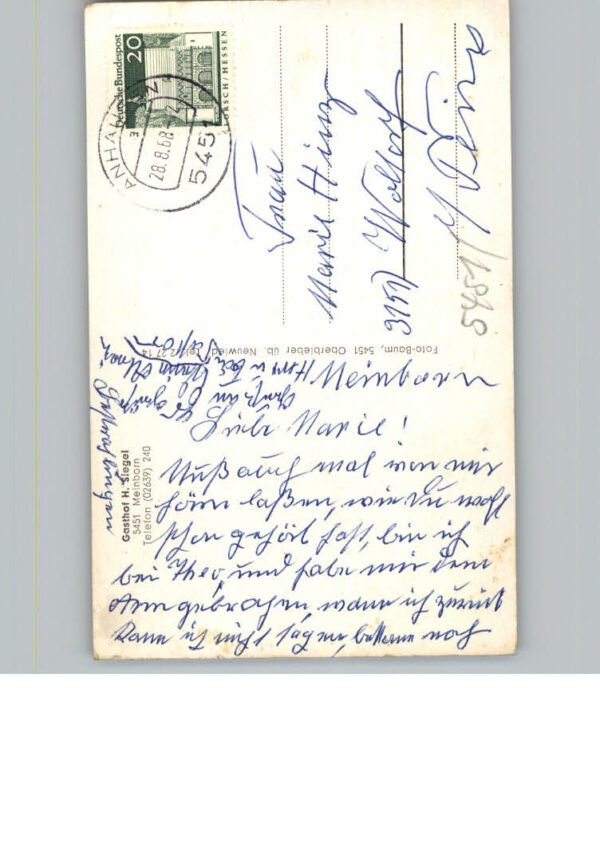 Meinborn
Liebe Marie!
Muß auch mal von mir
hören laßen, wie Du wohl
schon gehört hast, bin ich
bei Theo, und habe mir den
Arm gebrochen, wann ich zurück
kann ich nicht sagen, bekomme noch
Gruß an
Gasthof H. Siegel
5451 Meinborn
Telefon (02639) 240
Foto-Baum, 5451 Oberbieber üb. Neuwied, Tel. 2 27 14
Deutsche Bundespost
20
LORSCH/HESSEN
ANHAU
28.8.68
545
Frau
Marie Hinz
3151 Woltorf
Peine
5451/